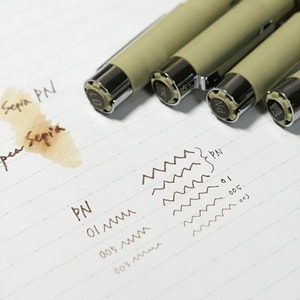 Sepia PN
Sepia
PN
PN
01
01
005
005
003
003